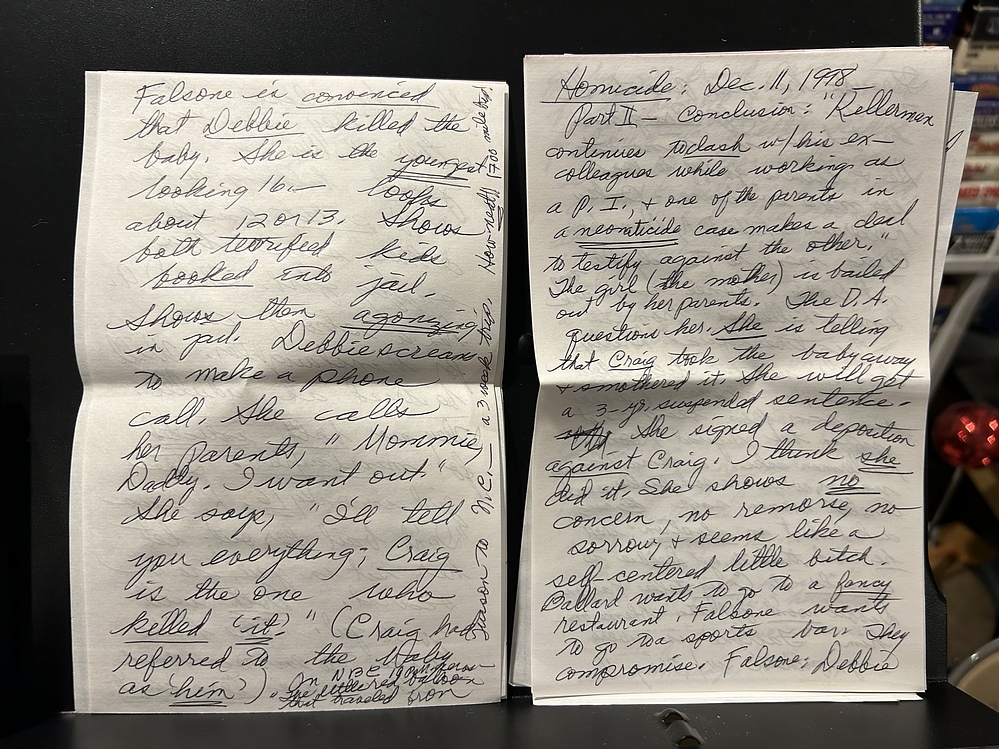 Falsone is convinced
that Debbie killed the
baby. She is the youngest
looking 16 — looks
about 12 or 13. Shows
both terrified kids
booked into jail.
Shows them agonizing
in jail. Debbie screams
to make a phone
call. She calls
her parents, "Mommie
Daddy. I want out."
She says, "I'll tell
you everything; Craig
is the one who
killed 'it'." (Craig had
referred to the baby
as 'him').
On NBC
the
balloon
that traveled from
to N.C. — a 3 week trip. How neat!! 700 miles
Homicide: Dec. 11, 1998 —
Part II — Conclusion: "Kellerman
continues to clash w/ his ex-
colleagues while working as
a P.I., + one of the parents in
a neonaticide case makes a deal
to testify against the other."
The girl (the mother) is bailed
out by her parents. The D.A.
questions her. She is telling
that Craig took the baby away
+ smothered it. She will get
a 3-yr. suspended sentence.
She signed a deposition
against Craig. I think she
did it. She shows no
concern, no remorse, no
sorrow, + seems like a
self-centered little bitch.
Ballard wants to go to a fancy
restaurant. Falsone wants
to go to a sports bar. They
compromise. Falsone: Debbie